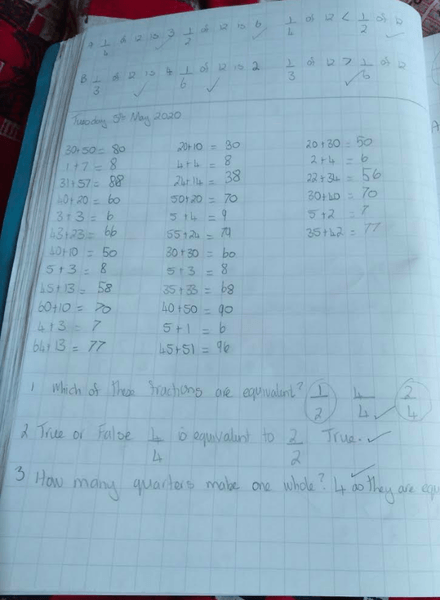 a 1/4 of 12 is 3 1/2 of 12 is 6 1/4 of 12 < 1/2 of 12
B 1/3 of 12 is 4 1/6 of 12 is 2 1/3 of 12 > 1/6 of 12
Tuesday 5th May 2020
30+50 = 80 20+10 = 30 20+30 = 50
1+7 = 8 4+4 = 8 2+4 = 6
31+57 = 88 24+14 = 38 22+34 = 56
40+20 = 60 50+20 = 70 30+40 = 70
3+3 = 6 5+4 = 9 5+2 = 7
43+23 = 66 55+24 = 79 35+42 = 77
40+10 = 50 30+30 = 60
5+3 = 8 5+3 = 8
45+13 = 58 35+33 = 68
60+10 = 70 40+50 = 90
4+3 = 7 5+1 = 6
64+13 = 77 45+51 = 96
1 Which of these fractions are equivalent? 1/2 4/4 2/4
2 True or False 4/4 is equivalent to 2/2 True.
3 How many quarters make one whole? 4 as they are